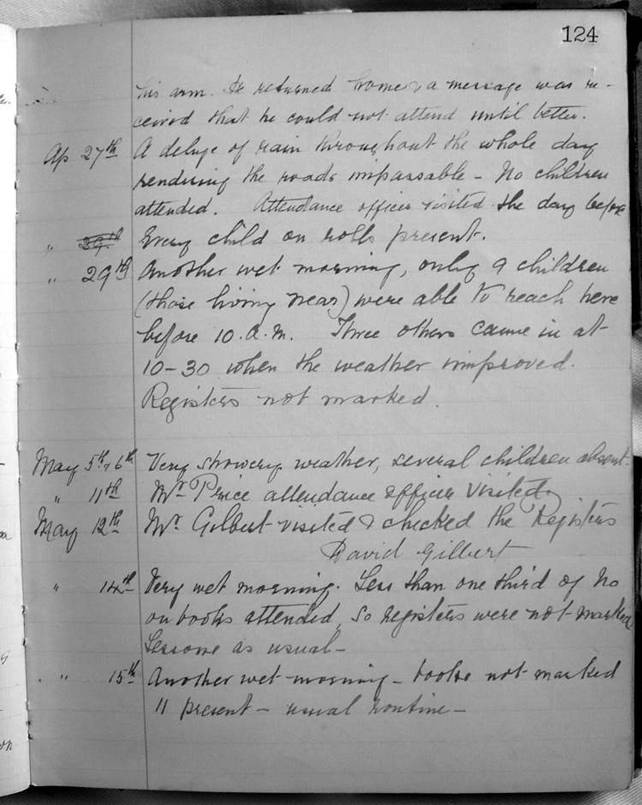 124
his arm. He returned home & a message was re-
ceived that he could not attend until better.
Ap 27th A deluge of rain throughout the whole day
rendering the roads impassable - No children
attended. Attendance officer visited the day before
" 29th Every child on rolls present.
" 29th Another wet morning, only 9 children
(those living near) were able to reach here
before 10.a.m. Three others came in at
10-30 when the weather improved.
Registers not marked.
May 5th, 6th Very showery weather, several children absent.
" 11th Mr Price attendance officer visited
May 12th Mr Gilbert visited & checked the Registers
David Gilbert
" 14th Very wet morning. Less than one third of No
on books attended, so registers were not marked
Lessons as usual -
" 15th Another wet morning - books not marked
11 present - usual routine -